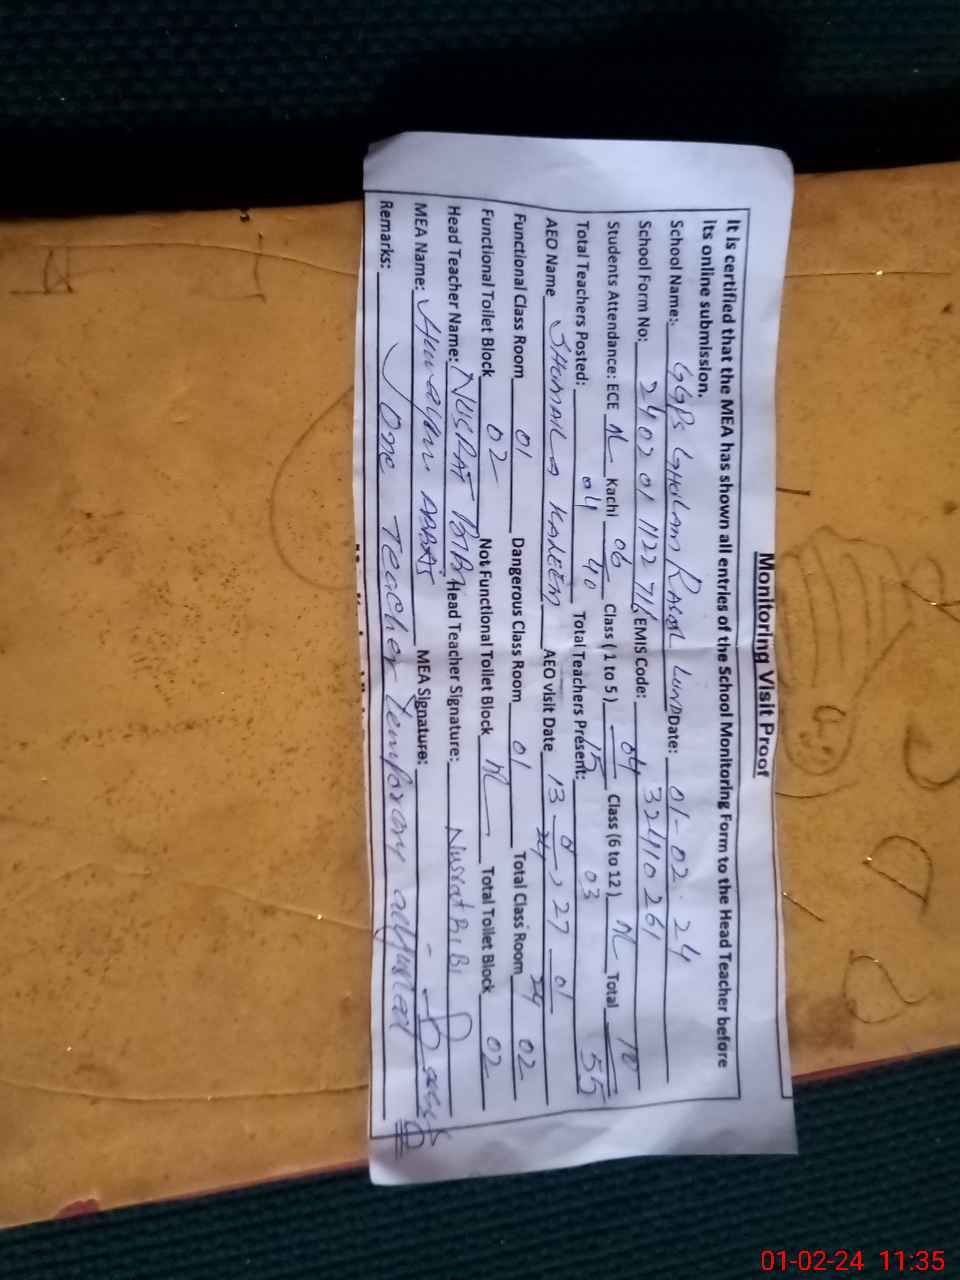 Monitoring Visit Proof
It is certified that the MEA has shown all entries of the School Monitoring Form to the Head Teacher before
its online submission.
School Name: GGPS GHULAM RASOOL LUND Date: 01-02-24
School Form No: 2402 01 1122 716 EMIS Code: 32410261
Students Attendance: ECE Kachi 06/40 Class (1 to 5) 04/15 Class (6 to 12) Total 10/55
Total Teachers Posted: 04 Total Teachers Present: 03
AEO Name SHUMAILA KALEEM AEO visit Date 13-01/24 27-01/24
Functional Class Room 01 Dangerous Class Room 01 Total Class Room 02
Functional Toilet Block 02 Not Functional Toilet Block Total Toilet Block 02
Head Teacher Name: NUSRAT BIBI Head Teacher Signature: Nusrat BiBi
MEA Name: Humayun ABBAS MEA Signature:
Remarks: One Teacher temporary adjusted
01-02-24 11:35